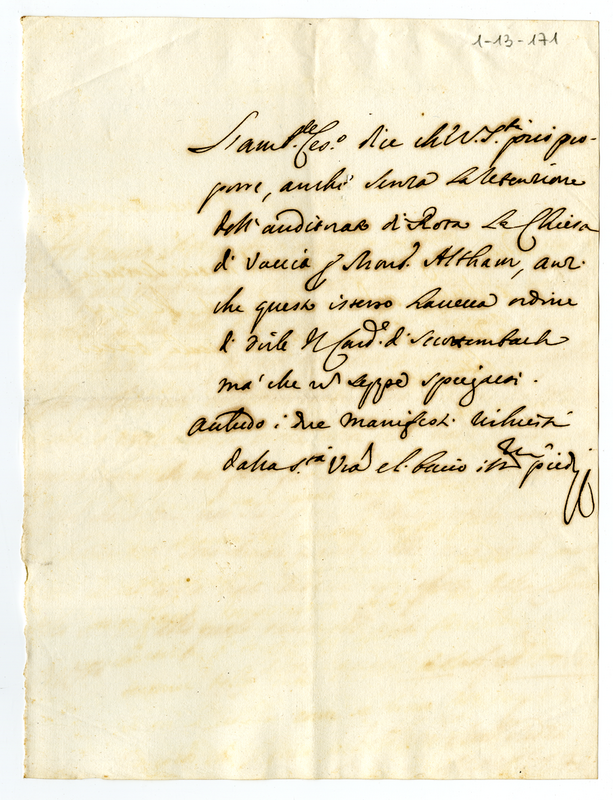 1-13-171
L'amb.re Ces.o dice ch'V. S.tà può pro-
porre, anche senza la retenzione
dell'auditorato di Rota la Chiesa
di Vaccia p Mons.r Althann, anzi
che questo istesso haveva ordine
di dirle il Card.e di Scrottembach
ma' che nō seppe spiegarsi.
Acchudo i due manifesti richiesti
dalla S.tà Vrā e l. bacio i Smi piedi